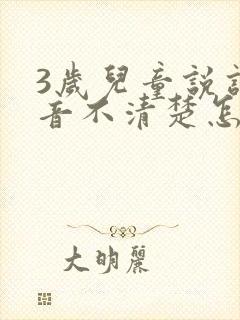 3歲兒童說
音不清楚怎
大明麗